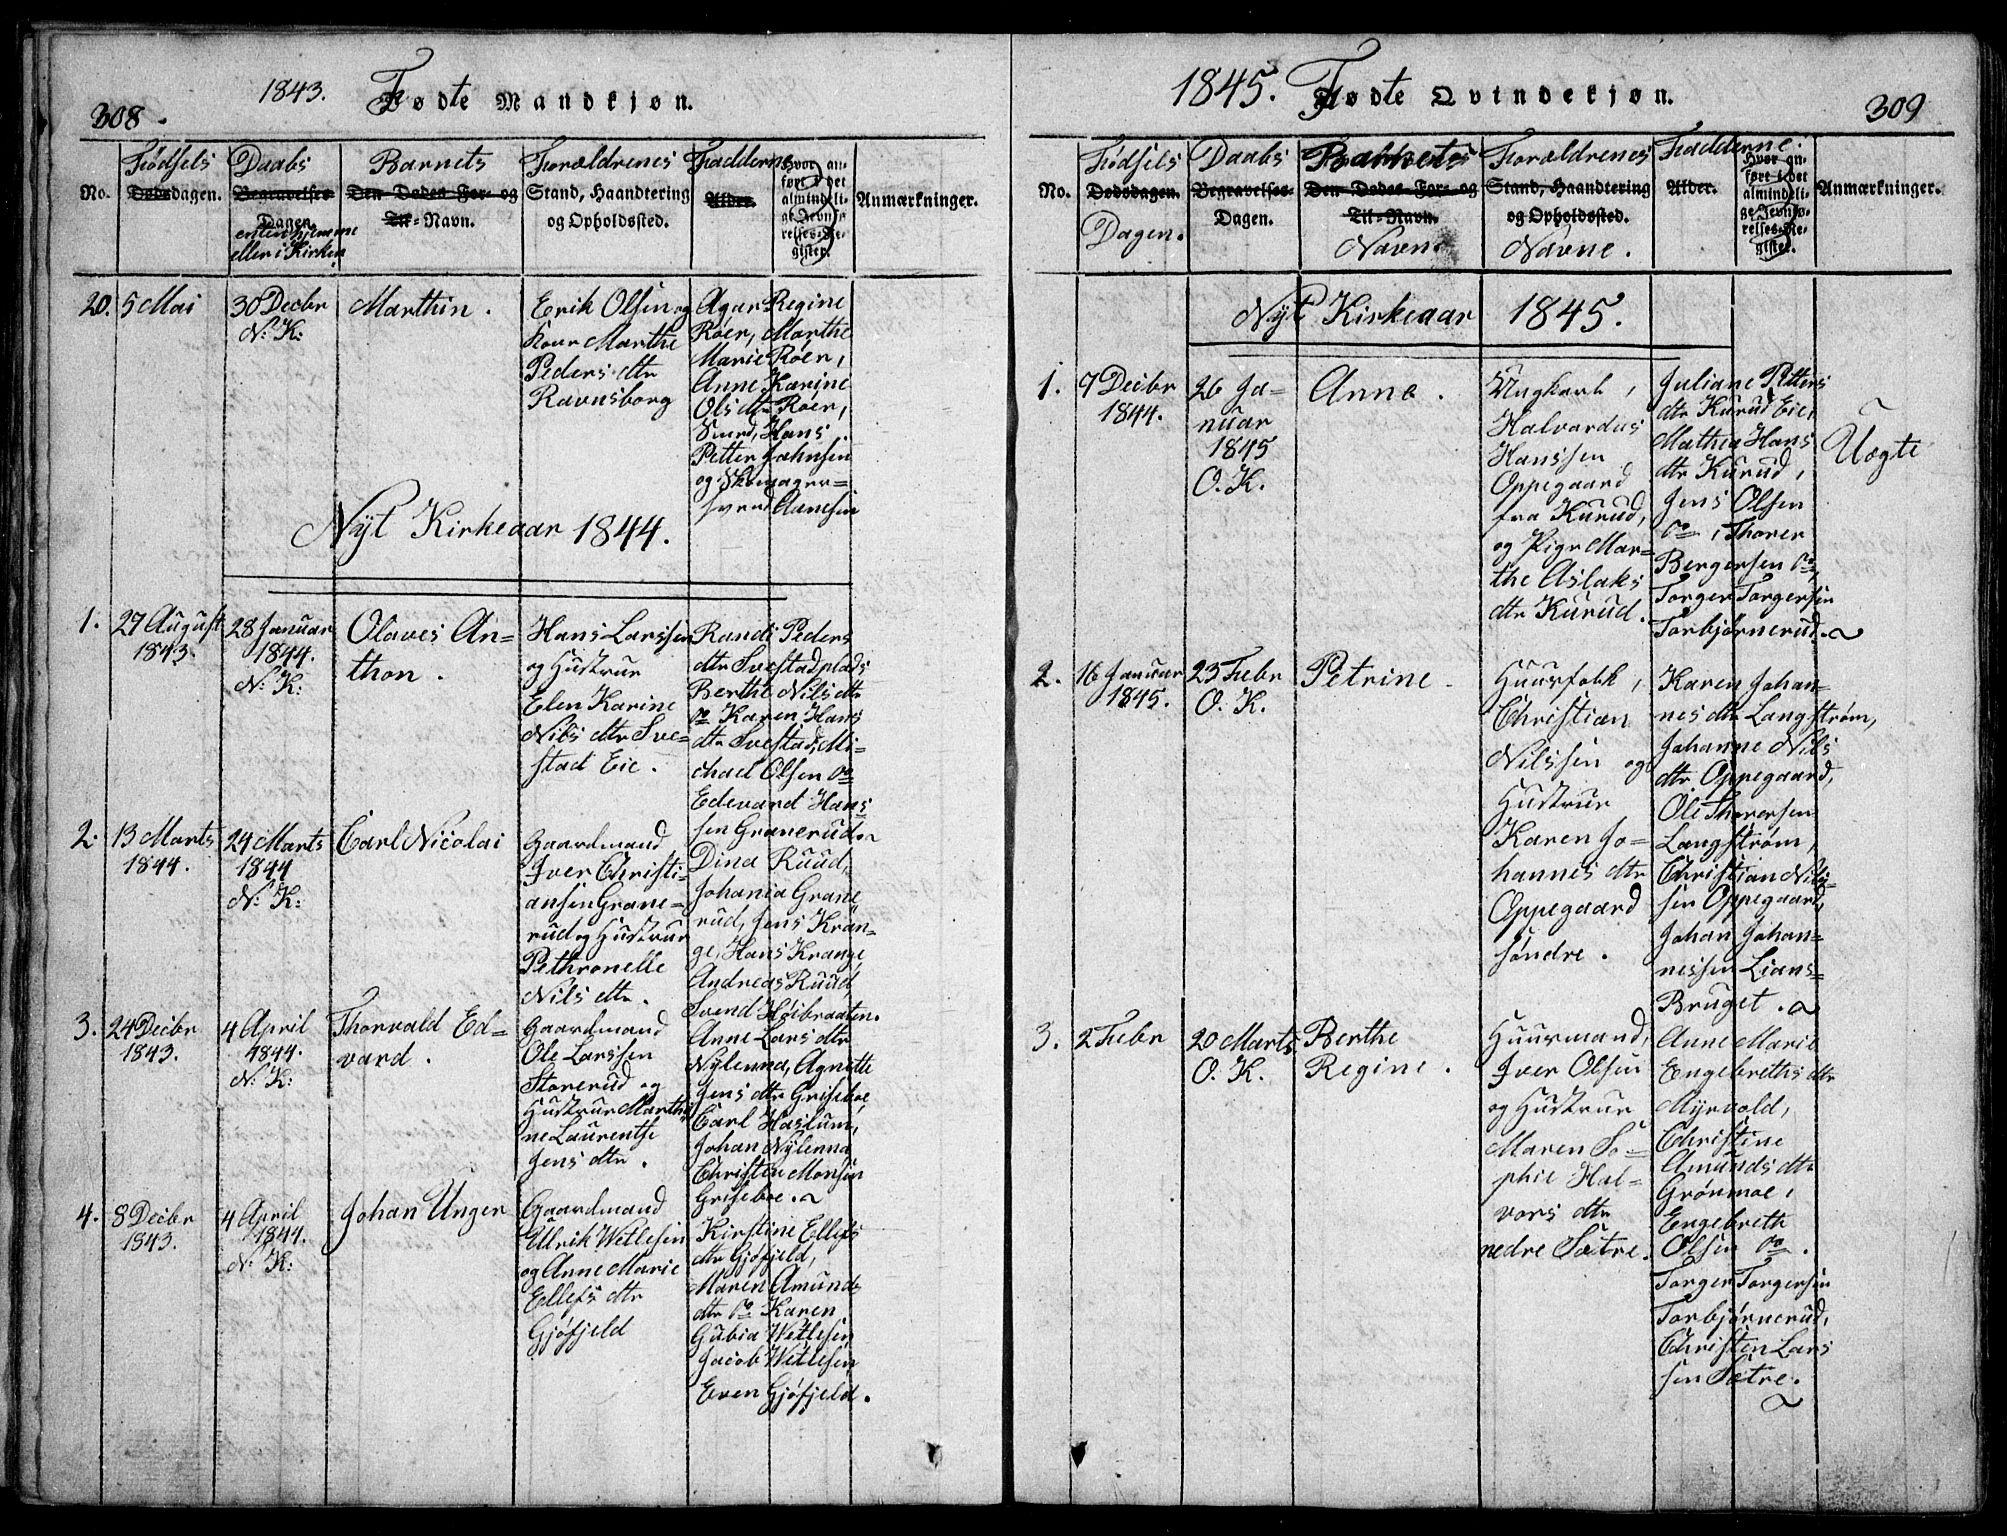 308.
1843. Fødte Mandkjøn.
No.
Fødsels
Dødsdagen.
Daabs
Begravelses-
Dagen.
enten hjemme
eller i Kirken
Barnets
Den Dødes For- og
Til-Navn.
Forældrenes
Stand, Haandtering
og Opholdssted.
Fadderne
Alder.
Hvor an-
ført i det
almindeli-
ge Jevnfø-
relses-Re-
gister.
Anmærkninger.
20.
5 Mai
30 Decbr
N: K:
Marthin.
Erik Olsen og
Kone Marthe
Peders dtr
Ravnsborg
Agar Regine
Röer, Marthe
Marie Röer,
Anne Karine
Ols dtr Röer,
Smed, Hans
Petter Johnsen
og Skomager=
svend Clamsen
Nyt Kirkeaar 1844.
1.
27 August
1843.
28 Januar
1844.
N: K:
Olaves An-
thon.
Hans Larssen
og Hustrue
Elen Karine
Nils dtr Sve-
stad Eie.
Randi Peders
dtr Svestadplads
Berthe Nils dtr
do Karen Hans
dtr Svestad, Mi-
chael Olsen do
Edevard Hans
sen Granerud
2.
13 Marts
1844.
24 Marts
1844
N: K:
Carl Nicolai
Gaardmand
Iver Christi-
ansen Grane-
rud og Hustrue
Pethronelle
Nils dtr.
Dina Ruud,
Johania Grane
rud, Jens Kran-
ge, Hans Krange
Andreas Ruud
Svend Höibraaten.
3.
24 Decbr
1843.
4 April
1844.
N: K:
Thorvald Ed-
vard.
Gaardmand
Ole Larssen
Storerud og
Hustrue Marthi
ne Laurentse
Jens dtr.
Anne Lars dtr
Nylenna, Agnette
Jens dtr Griseboe
Carl Haslum,
Johan Nylenna
Christen Monsen
Griseboe.
4.
8 Decbr
1843.
4 April
1844.
N: K:
Johan Unger
Gaardmand
Ellrik Wetlesen
og Anne Marie
Ellefs dtr
Gjøfjeld
Kirstine Ellefs
dtr Gjøfjeld,
Maren Amunds
dtr do Karen
Gubia Wetlesen
Jacob Wetlesen
Even Gjøfjeld.
1845. Fødte Qvindekjøn.
309
No.
Fødsels
Dødsdagen.
Dagen.
Daabs
Begravelses-
Dagen.
Barnets
Den Dødes For- og
Til-Navn.
Navne
Forældrenes
Stand, Haandtering
og Opholdssted.
Navne.
Fadderne.
Alder.
Hvor an-
ført i det
almindeli-
ge Jevnfø-
relses-Re-
gister.
Anmærkninger.
Nyt Kirkeaar 1845.
1.
7 Decbr
1844.
26 Ja-
nuar
1845
O. K.
Anne.
Ungkarl,
Halvardus
Hanssen
Oppegaard
fra Kurud,
og Pige Mar-
the Aslaks
dtr Kurud.
Juliane Petters
dtr Kurud Eie,
Mathea Hans
dtr Kurud,
Jens Olsen
do, Thorer
Bergersen do,
Torger Torgersen
Torbjørnerud.
Uægte
2.
16 Januar
1845.
23 Febr
O. K.
Petrine
Huusfolk,
Christian
Nilssen og
Hustrue
Karen Jo-
hannes dtr
Oppegaard
søndre.
Karen Johan-
nes dtr Langstrøm,
Johanne Nils
dtr Oppegaard,
Ole Thorersen
Langstrøm,
Christian Nils-
sen Oppegaard,
Johan Johan-
nessen Lians-
Bruget.
3.
2 Febr
20 Marts
O. K.
Berthe
Regine.
Huusmand,
Iver Olsen
og Hustrue
Maren So-
phie Hal-
vors dtr
nedre Sætre.
Anne Marie
Engebreths dtr
Myrvold,
Christine
Amunds dtr
Grönmoe,
Engebreth
Olsen do.
Torger Torgersen
Torbjørnerud,
Christen Lars
sen Sætre.